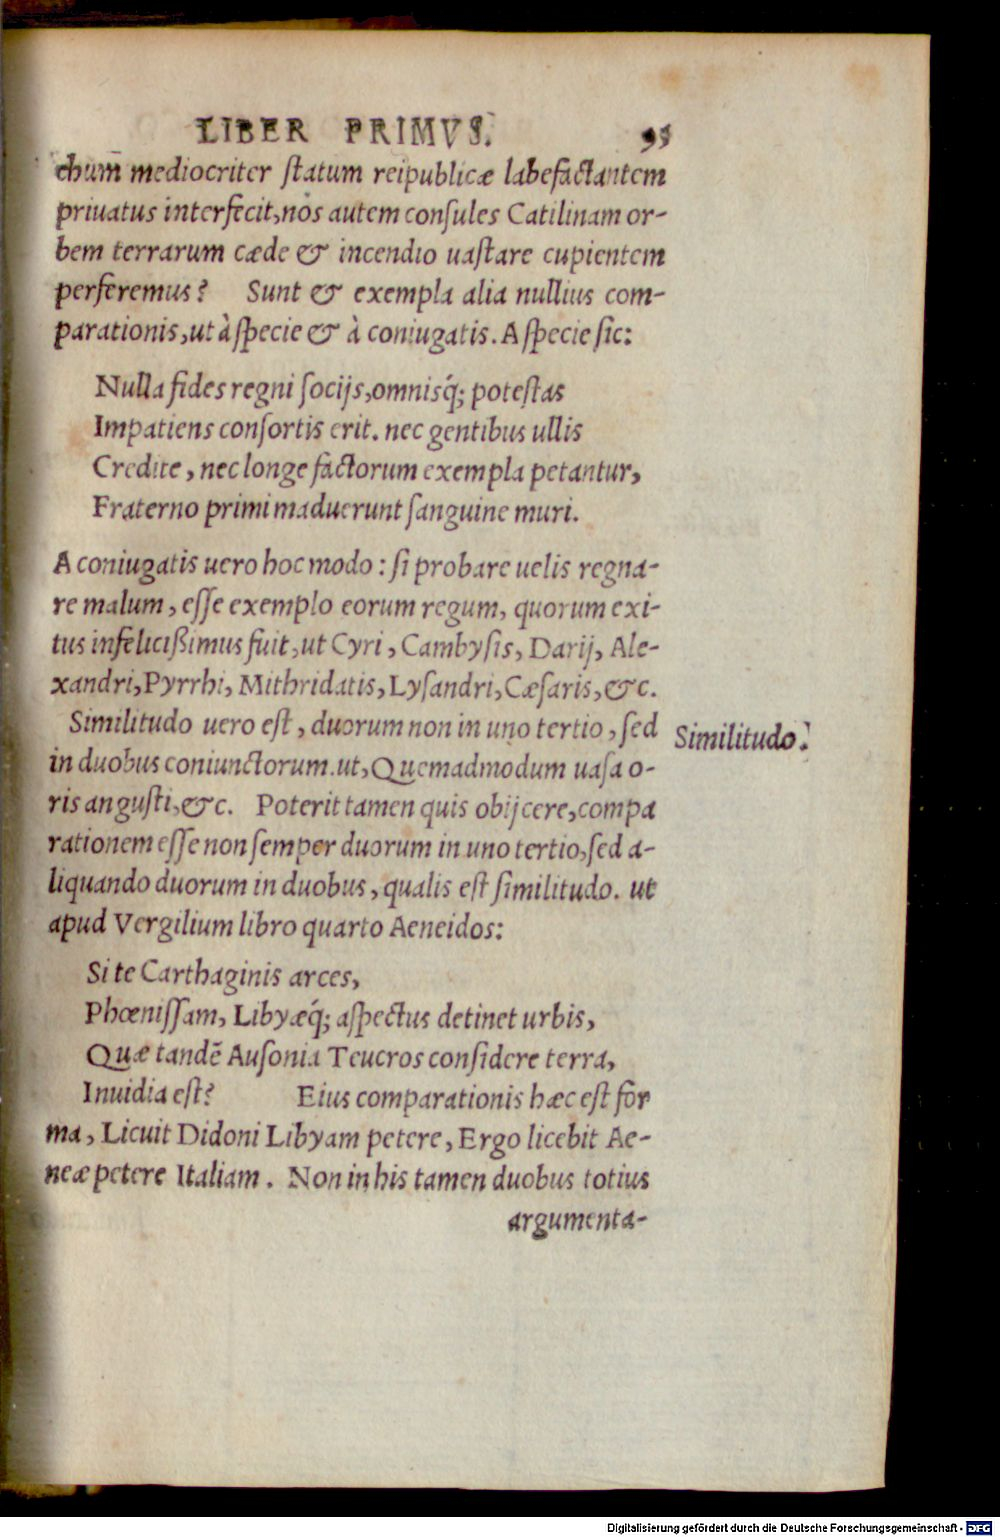 LIBER PRIMVS. 95
chum̃ mediocriter ſtatum reipublicæ labefactantem
priuatus interfecit, nos autem conſules Catilinam or-
bem terrarum cæde & incendio uaſtare cupientem
perferemus? Sunt & exempla alia nullius com-
parationis, ut à ſpecie & à coniugatis. A ſpecie ſic:
Nulla fides regni ſocijs, omnisq́; poteſtas
Impatiens conſortis erit. nec gentibus ullis
Credite, nec longe factorum exempla petantur,
Fraterno primi maduerunt ſanguine muri.
A coniugatis uero hoc modo: ſi probare uelis regna-
re malum, eſſe exemplo eorum regum, quorum exi-
tus infelicißimus fuit, ut Cyri, Cambyſis, Darij, Ale-
xandri, Pyrrhi, Mithridatis, Lyſandri, Cæſaris, &c.
Similitudo uero eſt, duorum non in uno tertio, ſed
Similitudo.
in duobus coniunctorum. ut, Quemadmodum uaſa o-
ris anguſti, &c. Poterit tamen quis obijcere, compa
rationem eſſe non ſemper duorum in uno tertio, ſed a-
liquando duorum in duobus, qualis eſt ſimilitudo. ut
apud Vergilium libro quarto Aeneidos:
Si te Carthaginis arces,
Phœniſſam, Libyæq́; aſpectus detinet urbis,
Quæ tandẽ Auſonia Teucros conſidere terra,
Inuidia eſt? Eius comparationis hæc eſt for
ma, Licuit Didoni Libyam petere, Ergo licebit Ae-
neæ petere Italiam. Non in his tamen duobus totius
argumenta-
Digitalisierung gefördert durch die Deutsche Forschungsgemeinschaft - DFG